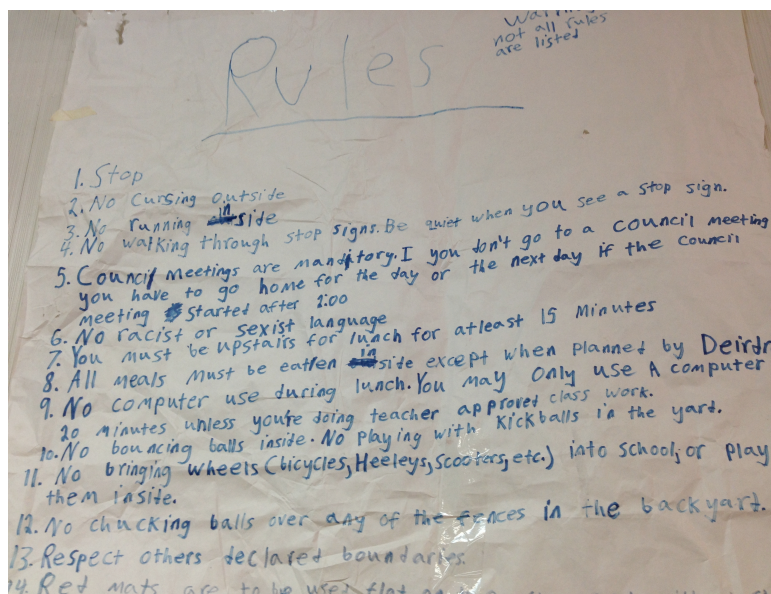 Warning
not all rules
are listed
Rules
1. Stop
2. No Cursing outside
3. No running inside
4. No walking through stop signs. Be quiet when you see a stop sign.
5. Council meetings are manditory. I you don't go to a council meeting
you have to go home for the day or the next day if the council
meeting started after 2:00
6. No racist or sexist language
7. You must be upstairs for lunch for atleast 15 Minutes
8. All meals must be eatten inside except when planned by Deirdr
9. No computer use during lunch. You may only use A computer
20 minutes unless you're doing teacher approved class work.
10. No bouncing balls inside. No playing with kickballs in the yard.
11. No bringing wheels (bicycles, Heeleys, Scooters, etc.) into school, or play
them inside.
12. No chucking balls over any of the fences in the backyard.
13. Respect others declared boundaries.
14. Red mats are to be used flat